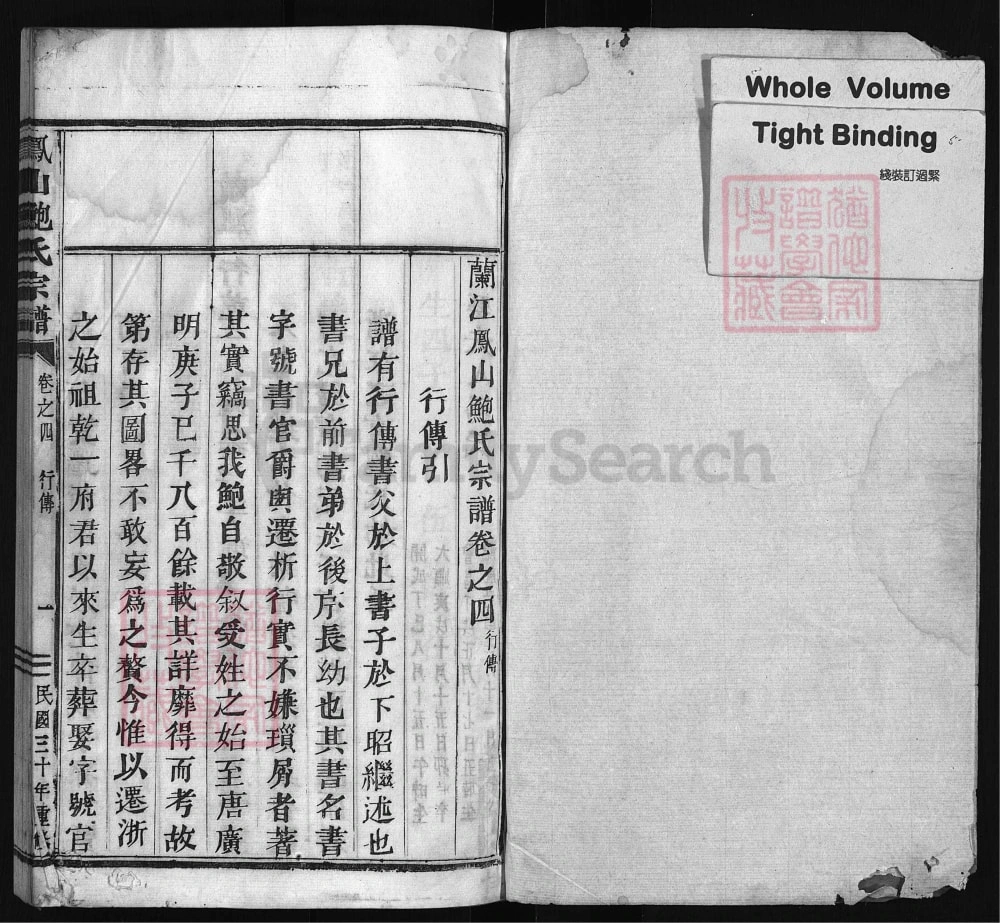 Whole Volume
Tight Binding
綫裝訂過緊
猶他家
譜學會
技藏
蘭江鳳山鮑氏宗譜卷之四 行傳
行傳引
譜有行傳書父於上書子於下昭繼述也
書兄於前書弟於後序長幼也其書名書
字號書官爵輿遷析行實不嫌瑣屑者著
其實竊思我鮑自敬叙受姓之始至唐廣
明庚子已千八百餘載其詳靡得而考故
第存其圖畧不敢妄爲之贅今惟以遷浙
之始祖乾一府君以來生卒葬娶字號官
鳳山鮑氏宗譜 卷之四 行傳 一 民國三十年重
FamilySearch